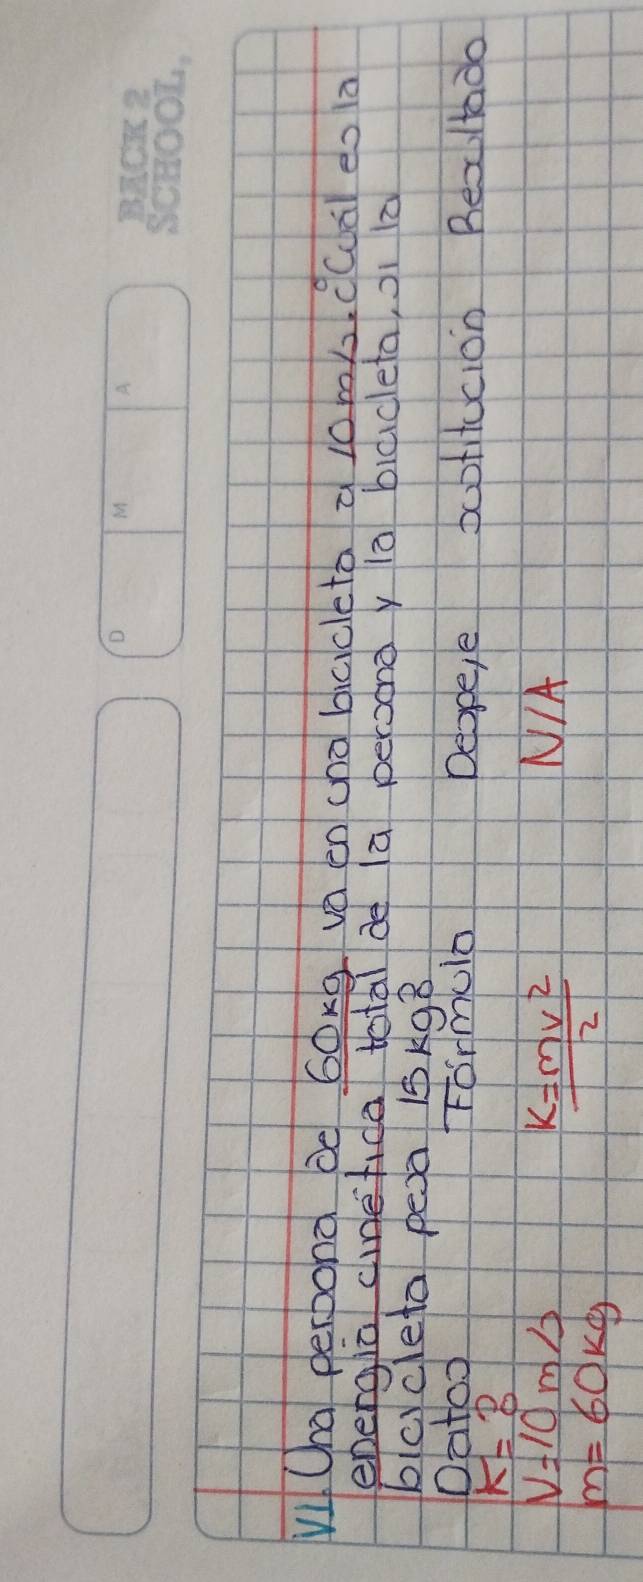 BACK 2
SCHOOL,
D M A
VI. Una persona de 60 kg va en una bicicleta a 10 m/s. ¿Cuál es la
energía cinética total de la persona y la bicicleta, si la
bicicleta pesa 15 kg?
Datos Fórmula Despeje sustitución Resultado
K=?
V=10 m/s K=mv²/2 N/A
m=60kg